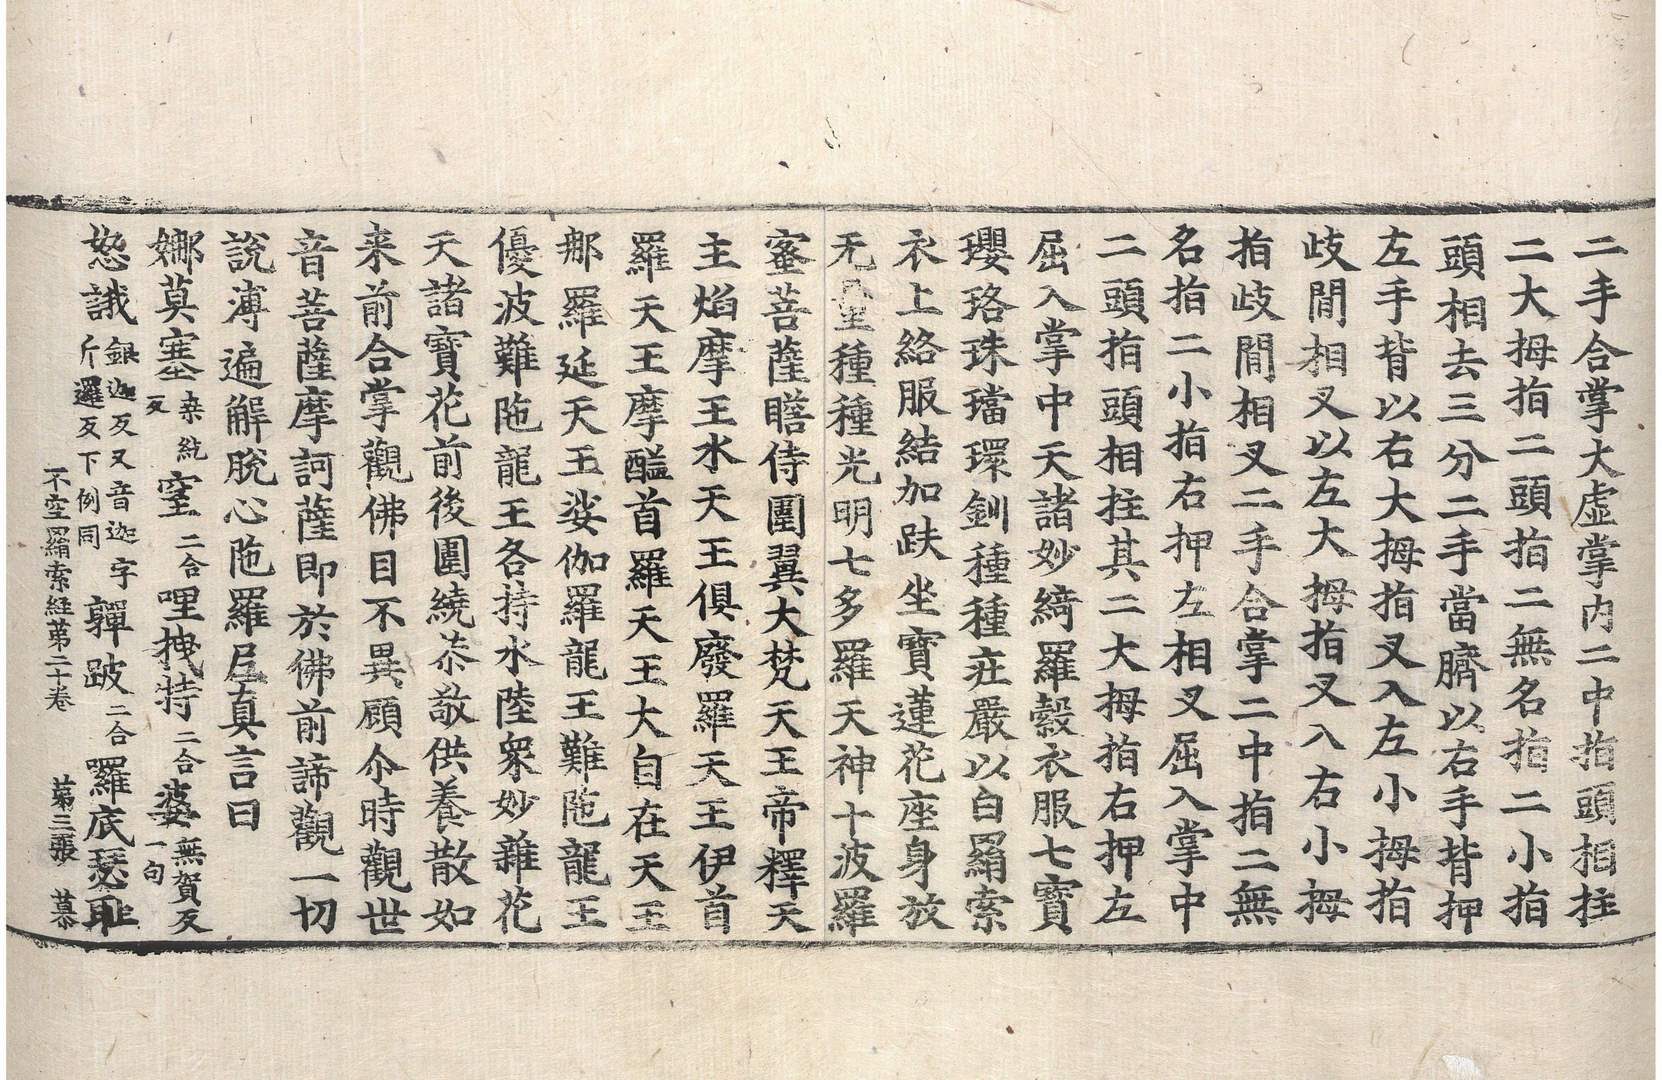 二手合掌大虛掌內二中指頭相拄
二大拇指二頭指二無名指二小指
頭相去三分二手當臍以右手背押
左手背以右大拇指叉入左小拇指
歧間相叉以左大拇指叉入右小拇
指歧間相叉二手合掌二中指二無
名指二小指右押左相叉屈入掌中
二頭指頭相拄其二大拇指右押左
屈入掌中天諸妙綺羅縠衣服七寶
瓔珞珠璫環釧種種莊嚴以白羂索
衣上絡服結加趺坐寶蓮花座身放
无量種種光明七多羅天神十波羅
蜜菩薩瞻侍圍翼大梵天王帝釋天
主焰摩王水天王俱廢羅天王伊首
羅天王摩醯首羅天王大自在天王
那羅延天王娑伽羅龍王難陁龍王
優波難陁龍王各持水陸衆妙雜花
天諸寶花前後圍繞恭敬供養散如
来前合掌觀佛目不異顧尒時觀世
音菩薩摩訶薩即於佛前諦觀一切
說薄遍解脫心陁羅尼真言曰
娜莫塞桒紇反窒二合哩拽特二合婆無賀反一句
怒誐銀迦反又音迦字斤邏反下例同亸跛二合羅底瑟耻
不空羂索経第二十卷 第三張 慕